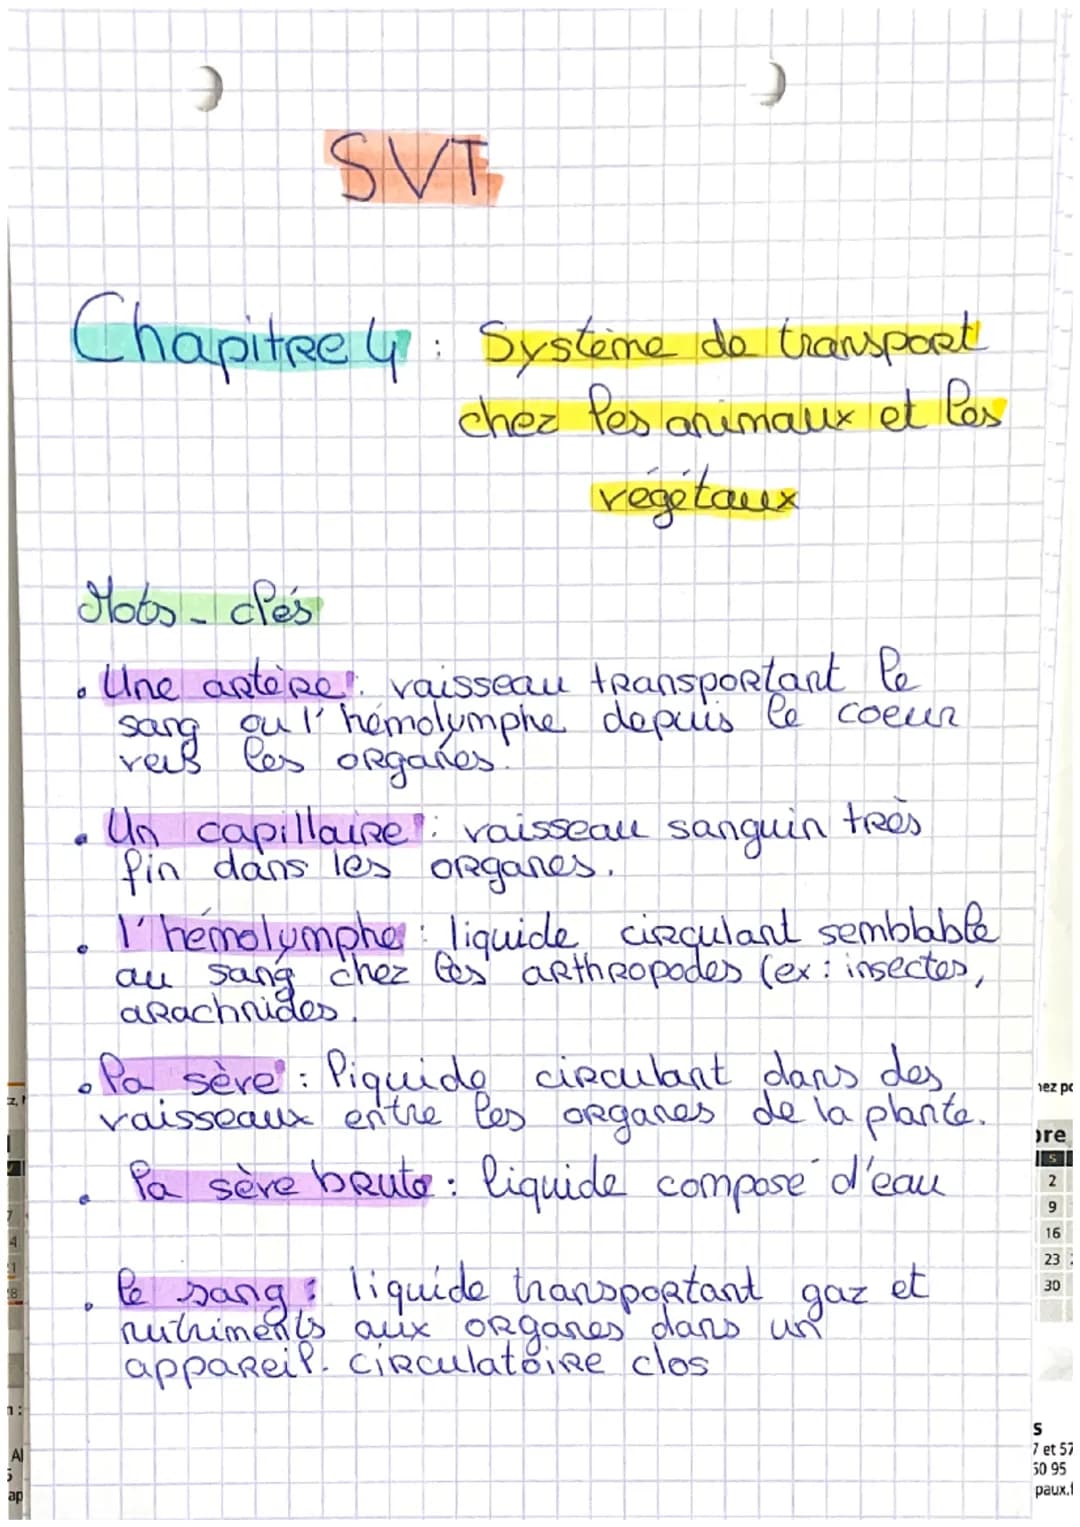 SVT
Chapitre 4 : Système de transport
chez les animaux et les
végétaux
Mots-clés
• Une artère : vaisseau transportant le
sang ou l'hémolymphe depuis le coeur
vers les organes.
• Un capillaire : vaisseau sanguin très
fin dans les organes.
• l'hémolymphe : liquide circulant semblable
au sang chez les arthropodes (ex : insectes,
arachnides.
• la sève : liquide circulant dans des
vaisseaux entre les organes de la plante.
• la sève brute : liquide composé d'eau
• le sang : liquide transportant gaz et
nutriments aux organes dans un
appareil circulatoire clos
hez
bre
S
2
9
16
23
30
s
7 et 57
50 95
paux.f